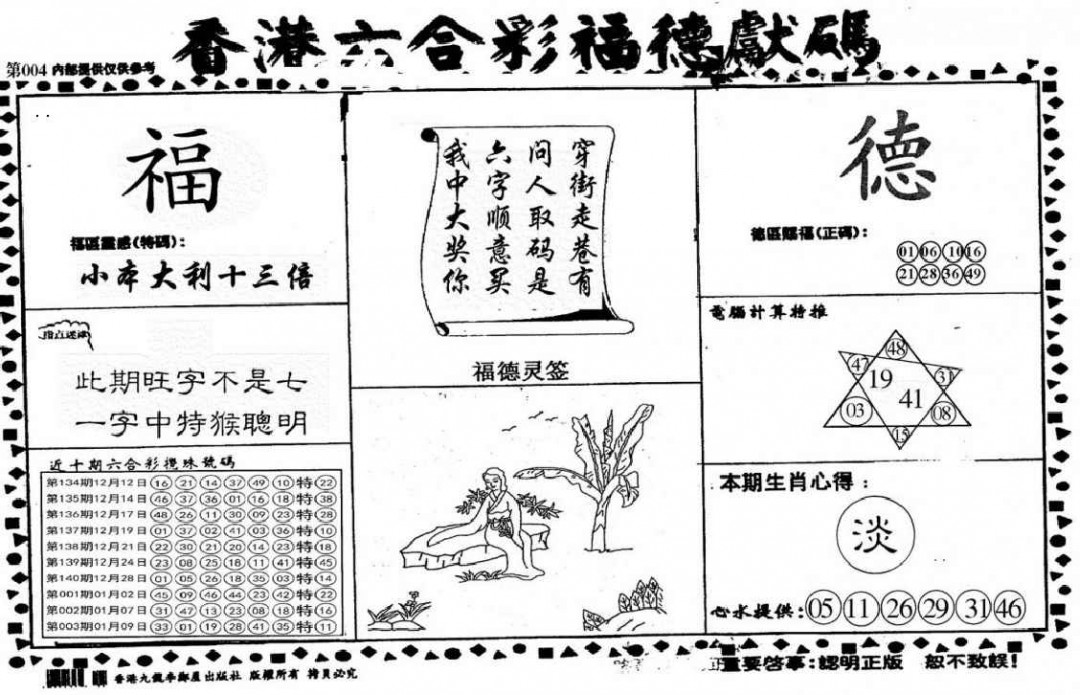 香港六合彩福德獻碼
第004 内部提供仅供參考
福
福區靈感(特碼):
小本大利十三倍
指点迷津
此期旺字不是七
一字中特猴聰明
近十期六合彩攪珠號碼
第134期12月12日 16 21 14 37 49 10 特 22
第135期12月14日 46 37 36 01 16 18 特 38
第136期12月17日 48 26 11 30 09 23 特 28
第137期12月19日 01 37 02 41 03 36 特 10
第138期12月21日 22 30 21 20 14 23 特 18
第139期12月24日 23 08 25 18 11 41 特 45
第140期12月28日 01 05 26 18 35 03 特 14
第001期01月02日 45 09 46 44 23 42 特 22
第002期01月07日 31 47 13 23 08 18 特 16
第003期01月09日 33 01 19 28 41 35 特 11
穿街走巷有
问人取码是
六字顺意买
我中大奖你
福德灵签
德
德區賜福(正碼):
01 06 10 16
21 28 36 49
電腦計算特推
48
47 19 31
03 41 08
15
本期生肖心得:
淡
心水提供:05 11 26 29 31 46
香港九龍
出版社 版權所有 拷貝必究
重要啓事:認明正版 恕不致誤!